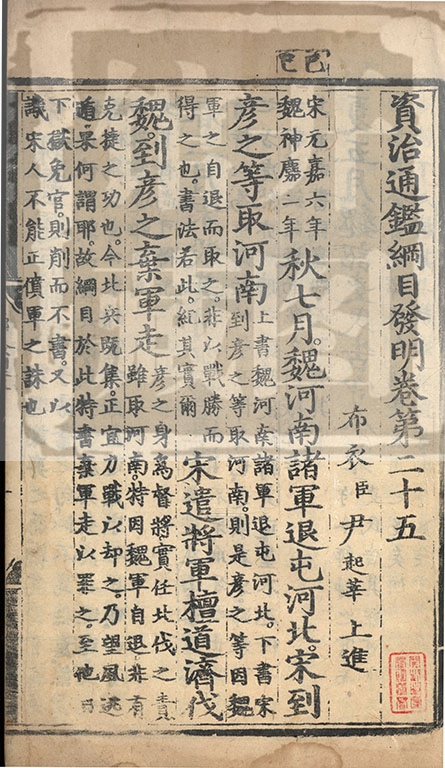 己巳
資治通鑑綱目發明卷第二十五
布衣臣尹起莘上進
宋元嘉六年
魏神䴥二年
秋七月。魏河南諸軍退屯河北。宋到
彥之等取河南
上書魏河南諸軍退屯河北。下書宋
到彥之等取河南。則是彥之等因魏
軍之自退而取之。非以戰勝而
得之也。書法若此。紀其實爾
宋遣將軍檀道濟伐
魏。到彥之棄軍走
彥之身為督將。實任北伐之責
雖取河南。特因魏軍自退。非有
克捷之功也。今北兵既集。正宜力戰以却之。乃望風逃
遁。果何謂耶。故綱目於此特書棄軍走以罪之。至他日
下獄免官。則削而不書。又以
譏宋人不能正僨軍之誅也